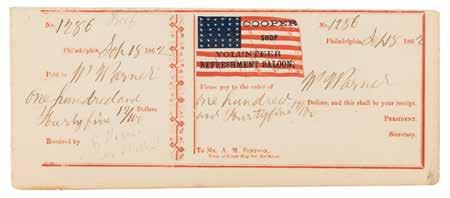 No. 1286
Philadelphia, Sep 18 1862
Paid to Wm Warner
one hundred and
thirty five Dollars
Received by
COOPER
SHOP
VOLUNTEER
REFRESHMENT SALOON;
No. 1286
Philadelphia, Sep 18 1862
Please pay to the order of Wm Warner
one hundred Dollars, and this shall be your receipt.
and thirty five
PRESIDENT.
Secretary.
To Mr. A. M. SIMPSON,